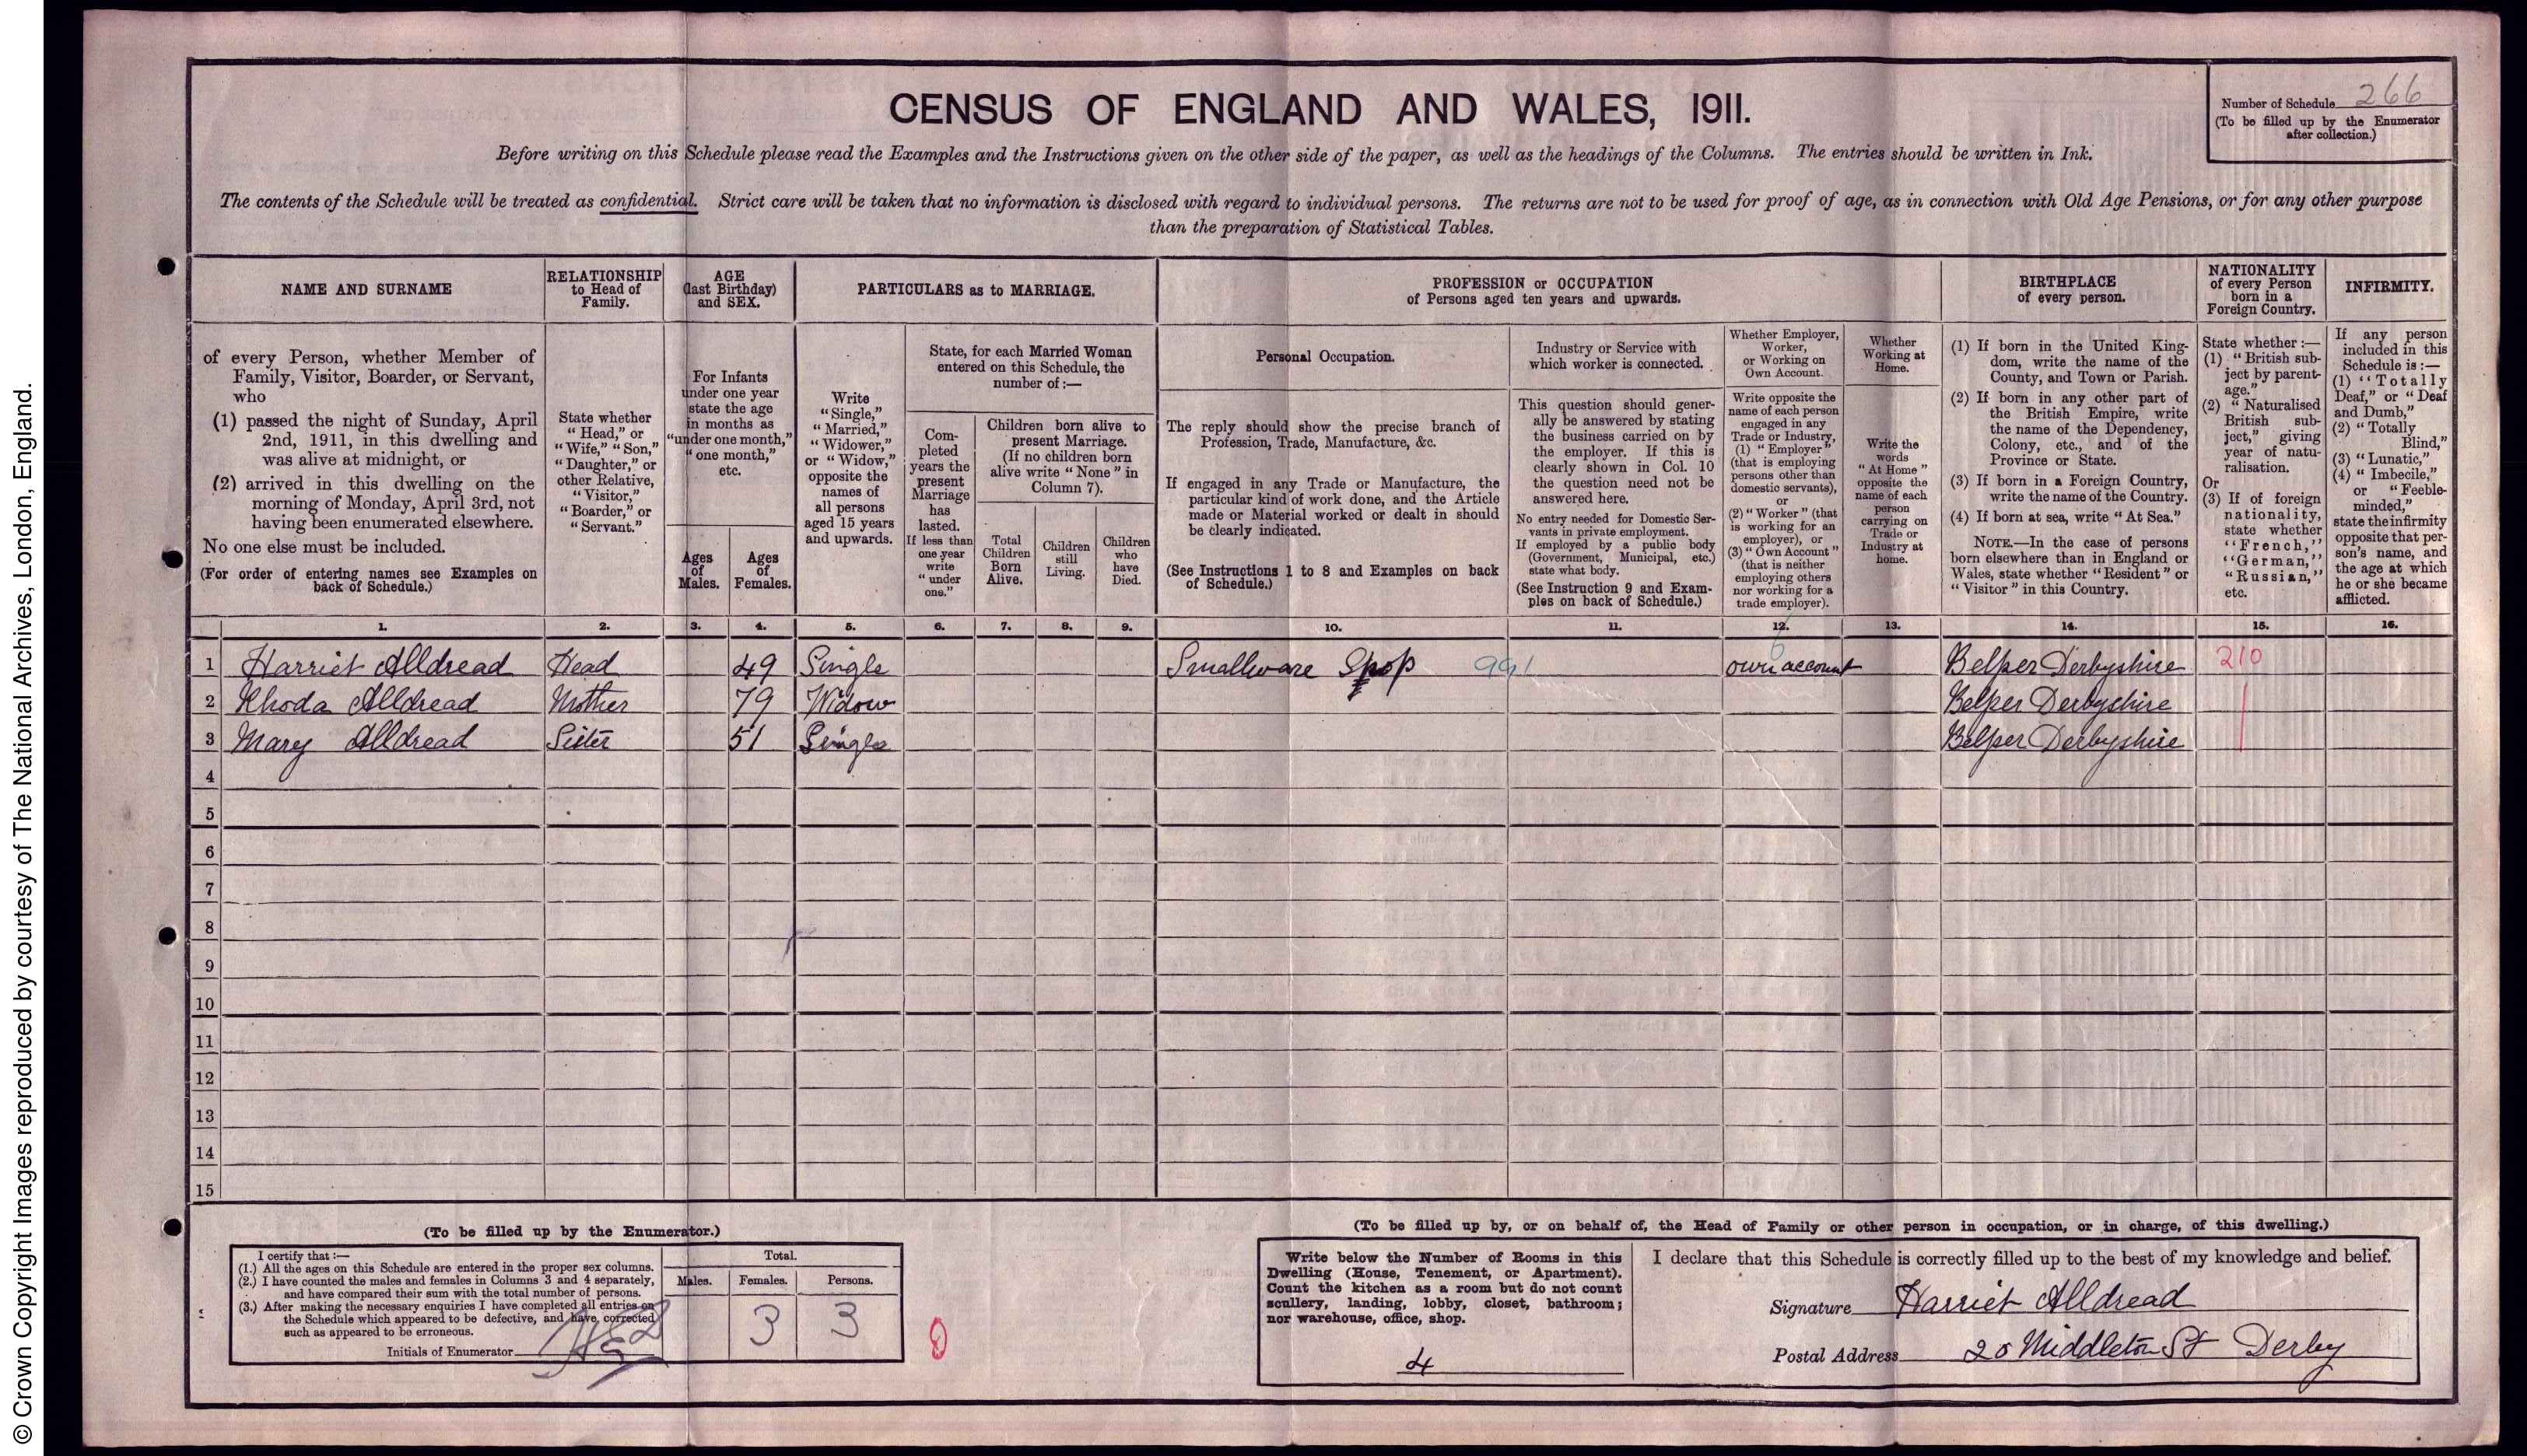 © Crown Copyright Images reproduced by courtesy of The National Archives, London, England.
CENSUS OF ENGLAND AND WALES, 1911.
Number of Schedule 266
(To be filled up by the Enumerator
after collection.)
Before writing on this Schedule please read the Examples and the Instructions given on the other side of the paper, as well as the headings of the Columns. The entries should be written in Ink.
The contents of the Schedule will be treated as confidential. Strict care will be taken that no information is disclosed with regard to individual persons. The returns are not to be used for proof of age, as in connection with Old Age Pensions, or for any other purpose
than the preparation of Statistical Tables.
NAME AND SURNAME
of every Person, whether Member of
Family, Visitor, Boarder, or Servant,
who
(1) passed the night of Sunday, April
2nd, 1911, in this dwelling and
was alive at midnight, or
(2) arrived in this dwelling on the
morning of Monday, April 3rd, not
having been enumerated elsewhere.
No one else must be included.
(For order of entering names see Examples on
back of Schedule.)
RELATIONSHIP
to Head of
Family.
State whether
"Head," or
"Wife," "Son,"
"Daughter," or
other Relative,
"Visitor,"
"Boarder," or
"Servant."
AGE
(last Birthday)
and SEX.
For Infants
under one year
state the age
in months as
"under one month,"
"one month,"
etc.
Ages
of
Males.
Ages
of
Females.
PARTICULARS as to MARRIAGE.
Write
"Single,"
"Married,"
"Widower,"
or "Widow,"
opposite the
names of
all persons
aged 15 years
and upwards.
State, for each Married Woman
entered on this Schedule, the
number of :—
Com-
pleted
years the
present
Marriage
has
lasted.
If less than
one year
write
"under
one."
Children born alive to
present Marriage.
(If no children born
alive write "None" in
Column 7).
Total
Children
Born
Alive.
Children
still
Living.
Children
who
have
Died.
PROFESSION or OCCUPATION
of Persons aged ten years and upwards.
Personal Occupation.
The reply should show the precise branch of
Profession, Trade, Manufacture, &c.
If engaged in any Trade or Manufacture, the
particular kind of work done, and the Article
made or Material worked or dealt in should
be clearly indicated.
(See Instructions 1 to 8 and Examples on back
of Schedule.)
Industry or Service with
which worker is connected.
This question should gener-
ally be answered by stating
the business carried on by
the employer. If this is
clearly shown in Col. 10
the question need not be
answered here.
No entry needed for Domestic Ser-
vants in private employment.
If employed by a public body
(Government, Municipal, etc.)
state what body.
(See Instruction 9 and Exam-
ples on back of Schedule.)
Whether Employer,
Worker,
or Working on
Own Account.
Write opposite the
name of each person
engaged in any
Trade or Industry,
(1) "Employer"
(that is employing
persons other than
domestic servants),
or
(2) "Worker" (that
is working for an
employer), or
(3) "Own Account"
(that is neither
employing others
nor working for a
trade employer).
Whether
Working at
Home.
Write the
words
"At Home"
opposite the
name of each
person
carrying on
Trade or
Industry at
home.
BIRTHPLACE
of every person.
(1) If born in the United King-
dom, write the name of the
County, and Town or Parish.
(2) If born in any other part of
the British Empire, write
the name of the Dependency,
Colony, etc., and of the
Province or State.
(3) If born in a Foreign Country,
write the name of the Country.
(4) If born at sea, write "At Sea."
NOTE.—In the case of persons
born elsewhere than in England or
Wales, state whether "Resident" or
"Visitor" in this Country.
NATIONALITY
of every Person
born in a
Foreign Country.
State whether :—
(1) "British sub-
ject by parent-
age."
(2) "Naturalised
British sub-
ject," giving
year of natu-
ralisation.
Or
(3) If of foreign
nationality,
state whether
"French,"
"German,"
"Russian,"
etc.
INFIRMITY.
If any person
included in this
Schedule is :—
(1) "Totally
Deaf," or "Deaf
and Dumb,"
(2) "Totally
Blind,"
(3) "Lunatic,"
(4) "Imbecile,"
or "Feeble-
minded,"
state the infirmity
opposite that per-
son's name, and
the age at which
he or she became
afflicted.
1. 2. 3. 4. 5. 6. 7. 8. 9. 10. 11. 12. 13. 14. 15. 16.
1 Harriet Alldread Head 49 Single Smallware Shop 991 own account Belper Derbyshire 210
2 Rhoda Alldread Mother 79 Widow Belper Derbyshire
3 Mary Alldread Sister 51 Single Belper Derbyshire
4
5
6
7
8
9
10
11
12
13
14
15
(To be filled up by the Enumerator.)
I certify that :—
(1.) All the ages on this Schedule are entered in the proper sex columns.
(2.) I have counted the males and females in Columns 3 and 4 separately,
and have compared their sum with the total number of persons.
(3.) After making the necessary enquiries I have completed all entries on
the Schedule which appeared to be defective, and have corrected
such as appeared to be erroneous.
Initials of Enumerator
Total.
Males. Females. Persons.
3 3
(To be filled up by, or on behalf of, the Head of Family or other person in occupation, or in charge, of this dwelling.)
Write below the Number of Rooms in this
Dwelling (House, Tenement, or Apartment).
Count the kitchen as a room but do not count
scullery, landing, lobby, closet, bathroom;
nor warehouse, office, shop.
4
I declare that this Schedule is correctly filled up to the best of my knowledge and belief.
Signature Harriet Alldread
Postal Address 20 Middleton St Derby